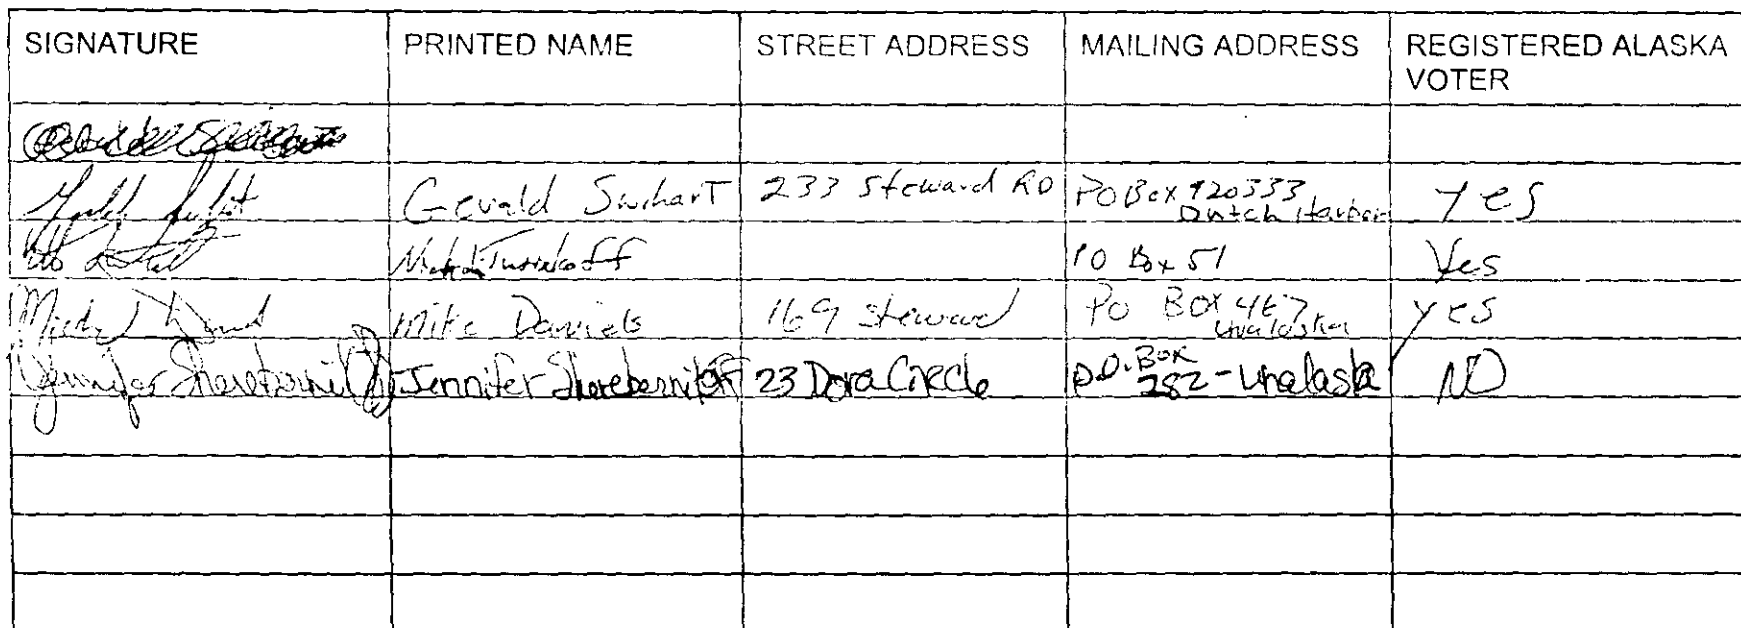 SIGNATURE PRINTED NAME STREET ADDRESS MAILING ADDRESS REGISTERED ALASKA
VOTER
Gerald Swihart 233 Steward RD PO Box 920333
Dutch Harbor yes
PO Box 51 Yes
Mike Daniels 169 Steward PO BOX 467
Unalaska yes
Jennifer Sherebernikoff Jennifer Sherebernikoff 23 Dora Circle P.O. Box
282 - Unalaska NO